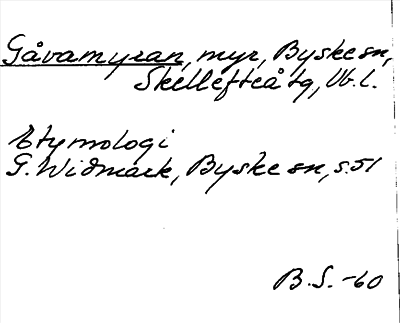 Gåvamyran, myr, Byske sn,
Skellefteå tg, Vb. l.
Etymologi
G. Widmark, Byske sn, s. 51
B.S. -60